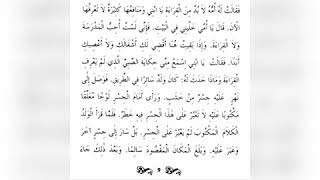 فَقَالَتْ لَهُ أُمُّهُ لَا بُدَّ مِنَ الْقِرَاءَةِ يَا ابْنِي وَمَنَافِعُهَا كَثِيرَةٌ لَا تَعْرِفُهَا
الْآنَ. قَالَ يَا أُمِّي خَلِّينِي فِي الْبَيْتِ. فَإِنِّي لَسْتُ أُحِبُّ الْمَدْرَسَةَ
وَلَا الْقِرَاءَةَ. وَإِذَا بَقِيتُ هُنَا أَقْضِي لَكِ أَشْغَالَكِ وَلَا أَعْصِيكِ
أَبَدًا. فَقَالَتْ يَا ابْنِي اسْمَعْ مِنِّي حِكَايَةَ الصَّبِيِّ الَّذِي لَمْ يَعْرِفِ
الْقِرَاءَةَ وَمَاذَا حَدَثَ لَهُ: كَانَ وَلَدٌ سَائِرًا فِي الطَّرِيقِ. فَوَصَلَ إِلَى
نَهْرٍ عَلَيْهِ جِسْرٌ مِنْ خَشَبٍ. وَرَأَى أَمَامَ الْجِسْرِ لَوْحًا مُعَلَّقًا
مَكْتُوبًا عَلَيْهِ لَا تَعْبُرْ عَلَى هَذَا الْجِسْرِ فِيهِ خَطَرٌ. فَلَمَّا قَرَأَ الْوَلَدُ
الْكَلَامَ الْمَكْتُوبَ لَمْ يَعْبُرْ عَلَى الْجِسْرِ. بَلْ سَارَ إِلَى جِسْرٍ آخَرَ
وَعَبَرَ عَلَيْهِ. وَبَلَغَ الْمَكَانَ الْمَقْصُودَ سَالِمًا. وَبَعْدَ ذَلِكَ جَاءَ
٩